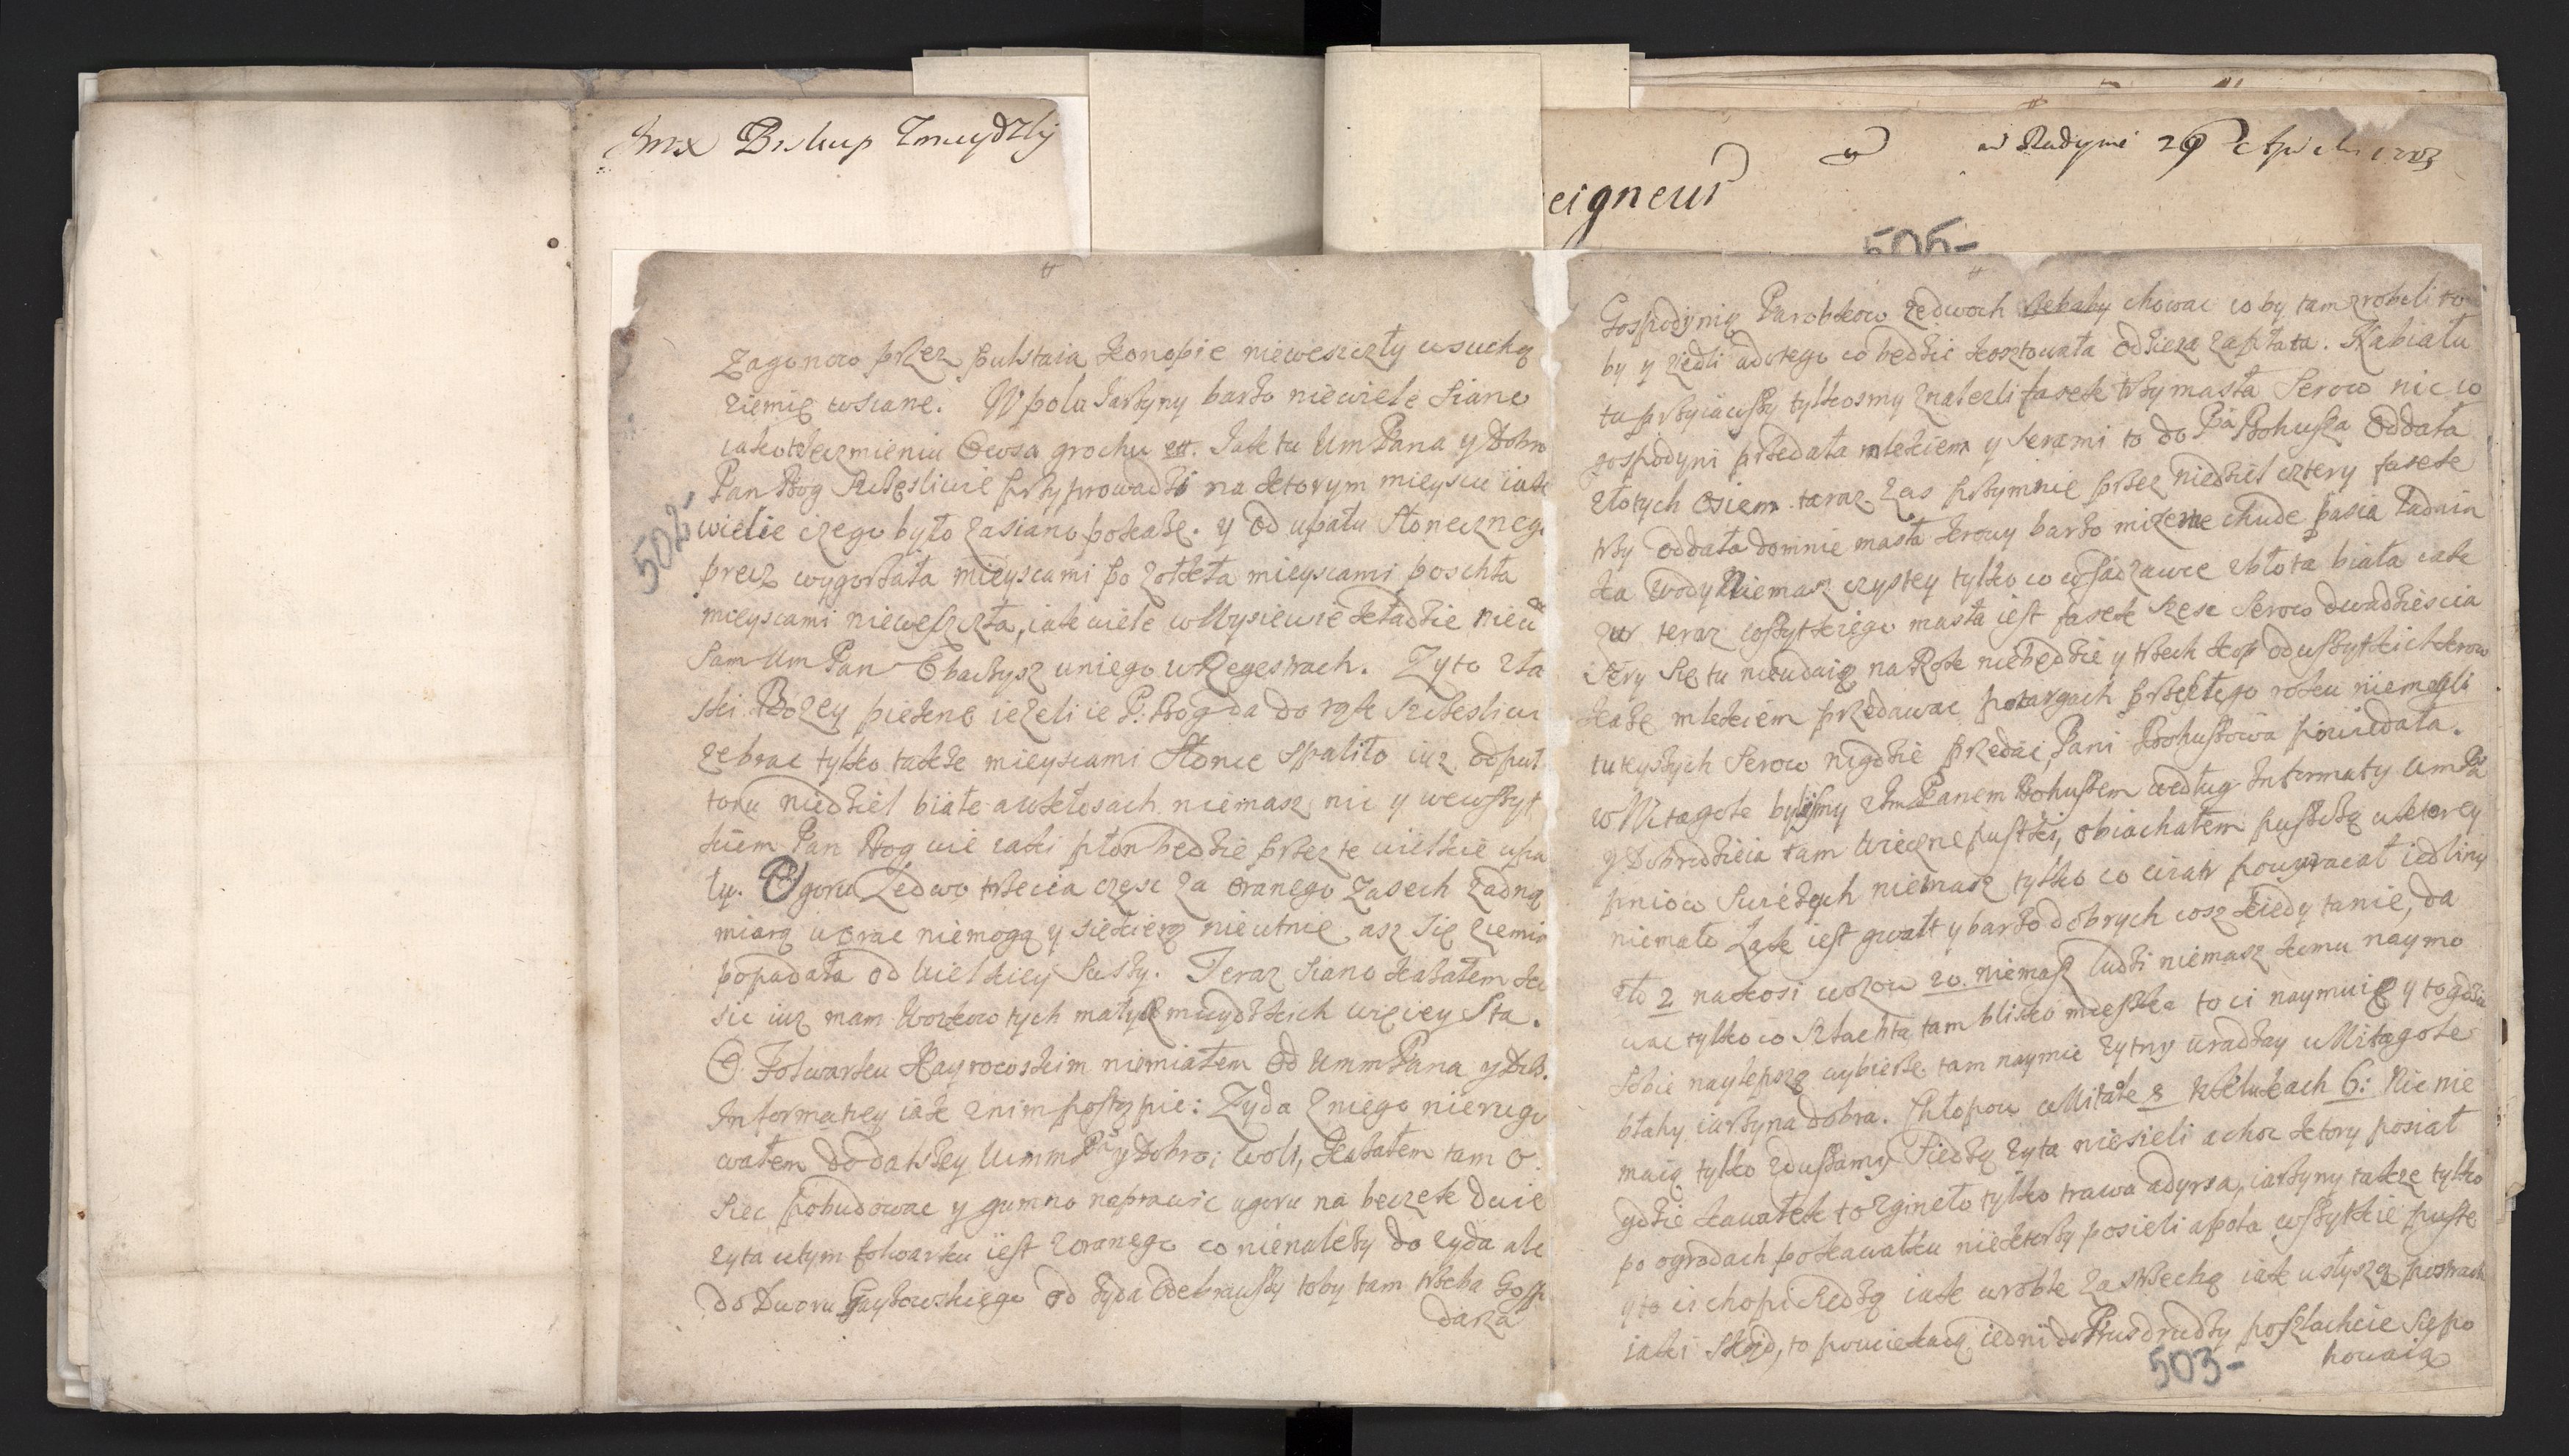 Jmx Biskup Zmuydzky
w Radymi 29 Aprilis
eigneur
506-
502-
Zagonow przez pulstaia Konopie nieweszczły w suchą
ziemię wsiane. W polu Jarzyny barzo niewiele siano
iako to Jeczmieniu Owsa grochu ett. Jak tu Um Pana y Dobro
Pan Bog szczęsliwie przyprowadzi na ktorym mieyscu iak
wiele czego było zasiano pokaże. y Od upału słonecznego
precz wygorzała mieyscami pożołkła mieyscami poschła
mieyscami nieweszczła, iak wiele w Wysiewie kładzie
Sam Um Pan Obaczysz u niego w Regestrach. Zyto z ła
ski Bozey piekne iezeli ie P: Bog da do rąk szczesliwi
zebrac tylko także mieyscami słonce spaliło iuz od puł
toru niedziel białe a w kłosach niemasz nic y we wszyt
kiem Pan Bog wie iaki plon będzie przez te wielkie upa
ły. Ugoru Ledwo trzecia część za oranego Zasech żadną
miarą uorac niemogą y siekierą nie utnie, asz się ziemia
popadała od wielkiey suszy. Teraz siano kazałem ko
sic iuz mam Wozkow tych małych muydzkich więcey Sta.
O Folwarku Kayrowskim niemiałem Od UmmPana y Dob.
Informacyey iak z nim postąpie: Zyda z niego nierugo
wałem do dalszey UmmPa y Dobro: woli, Kazałem tam O
siec pobudowac y gumno naprawic ugoru na beczek dwie
zyta w tym folwarku iest zoranego co nienależy do zyda ale
do Dworu Gayzowskiego od zyda Odebrawszy toby tam trzeba Gosp
darza
Gospodynię Parobkow ze dwoch chowac co by tam zrobili to
by y zjedli a do tego co będzie kosztowała Odzieza zapłata. Nabiału
tu przyiawszy tylkosmy znalezli fasek trzy masła Serow nic co
gospodyni przedała mlekiem y serami to do Pa Bohusza Oddała
złotych Osiem. teraz zas przymnie przez niedziel cztery fasek
trzy oddała domnie masła krowy barzo mizerne chude pasia ładnia
ka wody Niemasz czystey tylko co w sadzawce z błota biała iak
zur teraz wszytkiego masła iest fasek szesc Serow dwadziescia
sery się tu nieudaią na Rok niebędzie y trzech kop od wszytkich krow
każę mlekiem przedawac po targach przeszłego roku niemogli
tuteyszych Serow nigdzie przedac, Pani Bohuszowa powiedała.
w Mitagole bylismy z Jm Panem Bohuszem według Informaty Um Pa
y Dobrodzieia tam Wieczne pustki, obiachałem puszczą w ktorey
pniow swiezych niemasz tylko co wiatr powywracał iedliny
niemało Łąk iest gwałt y barzo dobrych wosz kiedy tanie, da
sto 2 na kosi wozow 20. niemasz ludzi niemasz komu naymo
wac tylko co szlachta tam blisko mieszka to ci naymuią y to gdzie
sobie naylepszą wybierze tam naymie zytny uradzay w Mitagole
błahy iarzyna dobra. Chłopow w Mitale 8 w Szlukach 6: Nic nie
maią tylko z duszami siedzą zyta niesieli a choc ktory posiał
gdzie kawałek to zgineło tylko trawa a dyrsa, iarzyny takze tylko
po ogrodach po kawałku niektorzy posieli a pola wszytkie puste
y to ci chopi siedzą iak wroble za strzechą iak usłyszą postrach
iaki skąd, to pouciekaią iedni do Prus drudzy po szlachcie się po
howaią
503-